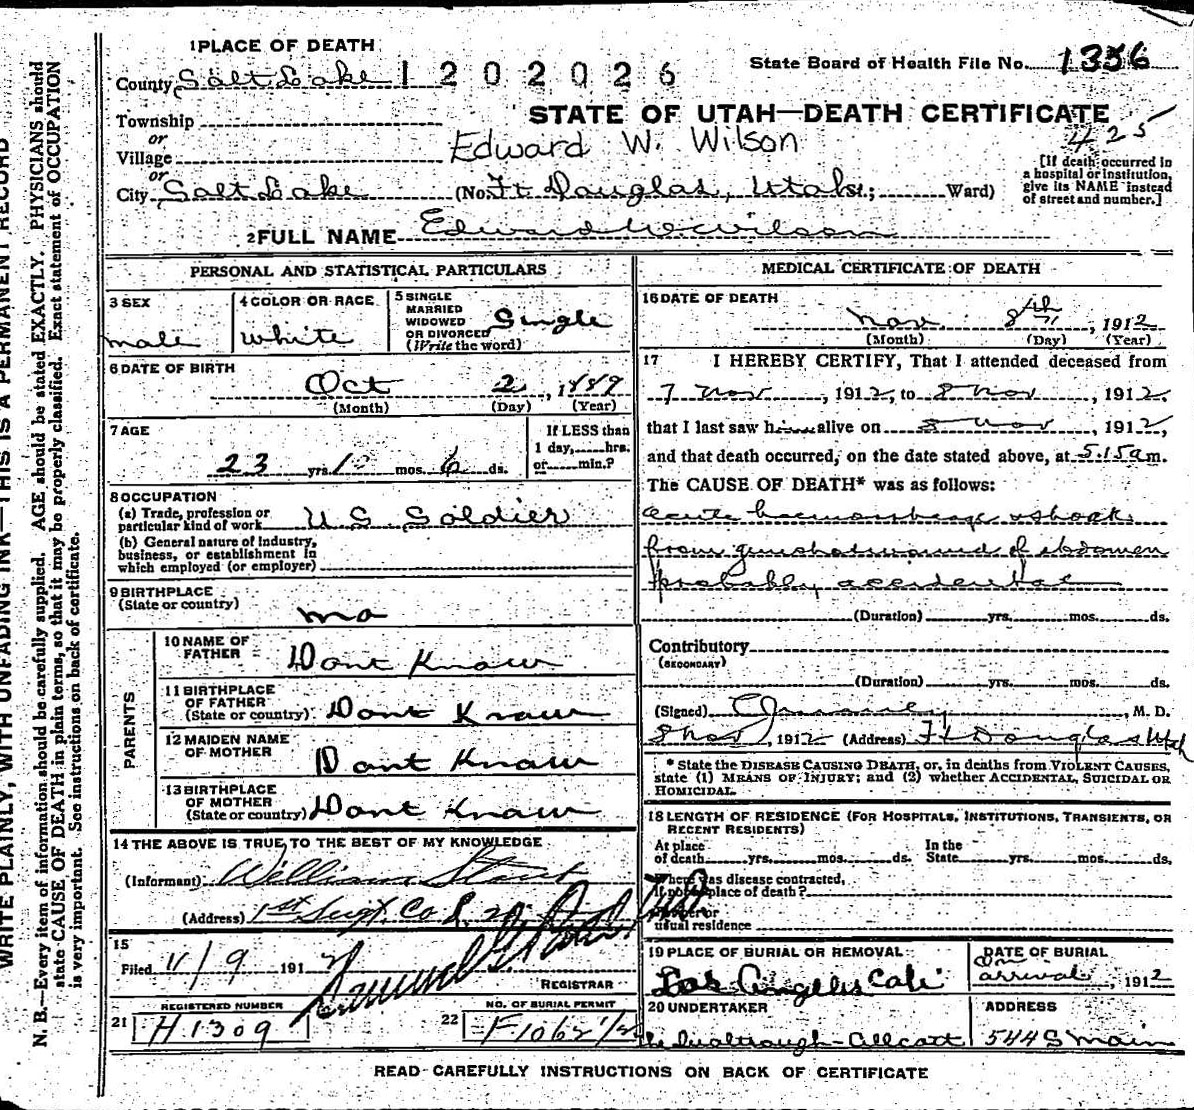 WRITE PLAINLY, WITH UNFADING INK—THIS IS A PERMANENT RECORD
N. B.—Every item of information should be carefully supplied. AGE should be stated EXACTLY. PHYSICIANS should
state CAUSE OF DEATH in plain terms, so that it may be properly classified. Exact statement of OCCUPATION
is very important. See instructions on back of certificate.
1 PLACE OF DEATH
County Salt Lake 1202026
State Board of Health File No. 1336
STATE OF UTAH—DEATH CERTIFICATE
Township
or
Village
or
Edward W. Wilson
425
[If death occurred in
a hospital or institution,
give its NAME instead
of street and number.]
City Salt Lake (No. Ft Douglas, Utah St.; Ward)
2 FULL NAME Edward W. Wilson
PERSONAL AND STATISTICAL PARTICULARS
3 SEX
male
4 COLOR OR RACE
white
5 SINGLE
MARRIED
WIDOWED
OR DIVORCED
(Write the word)
Single
6 DATE OF BIRTH
Oct 2, 1889
(Month) (Day) (Year)
7 AGE
23 yrs. 1 mos. 6 ds.
If LESS than
1 day, hrs.
or min.?
8 OCCUPATION
(a) Trade, profession or
particular kind of work U.S. Soldier
(b) General nature of industry,
business, or establishment in
which employed (or employer)
9 BIRTHPLACE
(State or country)
Mo
PARENTS
10 NAME OF
FATHER Dont Know
11 BIRTHPLACE
OF FATHER
(State or country) Dont Know
12 MAIDEN NAME
OF MOTHER Dont Know
13 BIRTHPLACE
OF MOTHER
(State or country) Dont Know
14 THE ABOVE IS TRUE TO THE BEST OF MY KNOWLEDGE
(Informant) William Stout
(Address) 1st Sergt. Co.
15
Filed 11/9 1912
REGISTRAR
REGISTERED NUMBER
21 H1309
NO. OF BURIAL PERMIT
22 F1062 1/2
MEDICAL CERTIFICATE OF DEATH
16 DATE OF DEATH
Nov. 8th, 1912
(Month) (Day) (Year)
17 I HEREBY CERTIFY, That I attended deceased from
7 Nov, 1912, to 8 Nov, 1912,
that I last saw him alive on 8 Nov, 1912,
and that death occurred, on the date stated above, at 5:15 a m.
The CAUSE OF DEATH* was as follows:
acute haemorrhage & shock
from gunshot wound of abdomen
probably accidental
(Duration) yrs. mos. ds.
Contributory
(SECONDARY)
(Duration) yrs. mos. ds.
(Signed) , M. D.
8 Nov, 1912 (Address) Ft Douglas Utah
* State the DISEASE CAUSING DEATH, or, in deaths from VIOLENT CAUSES,
state (1) MEANS OF INJURY; and (2) whether ACCIDENTAL, SUICIDAL OR
HOMICIDAL.
18 LENGTH OF RESIDENCE (FOR HOSPITALS, INSTITUTIONS, TRANSIENTS, OR
RECENT RESIDENTS)
At place
of death yrs. mos. ds.
In the
State yrs. mos. ds.
Where was disease contracted,
if not at place of death?
Former or
usual residence
19 PLACE OF BURIAL OR REMOVAL
Los Angeles Cali
DATE OF BURIAL
on arrival, 1912
20 UNDERTAKER
ADDRESS
544 S Main
READ CAREFULLY INSTRUCTIONS ON BACK OF CERTIFICATE